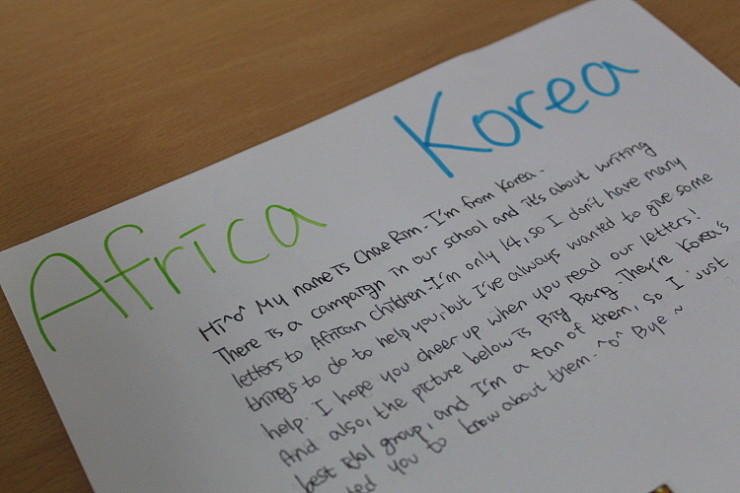 Africa
Korea
Hi^o^ My name is Chae Rim. I'm from Korea.
There is a campaign in our school and it's about writing
letters to African children. I'm only 14, so I don't have many
things to do to help you, but I've always wanted to give some
help. I hope you cheer up when you read our letters!
And also, the picture below is Big Bang. They're Korea's
best Idol group, and I'm a fan of them, so I just
you to know about them. ^o^ Bye ~